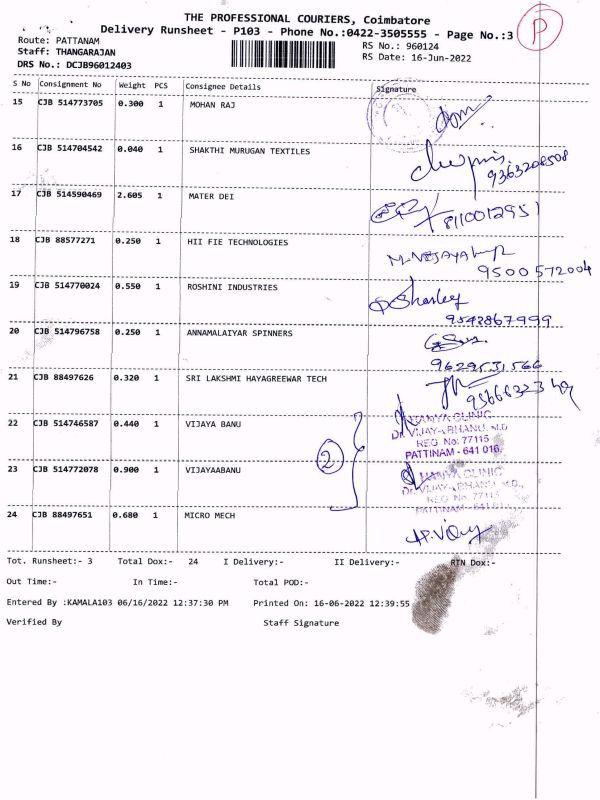 THE PROFESSIONAL COURIERS, Coimbatore
Delivery Runsheet - P103 - Phone No.:0422-3505555 - Page No.:3
P
Route: PATTANAM
RS No.: 960124
Staff: THANGARAJAN
RS Date: 16-Jun-2022
DRS No.: DCJB96012403
S No Consignment No Weight PCS Consignee Details Signature
15 CJB 514773705 0.300 1 MOHAN RAJ
16 CJB 514704542 0.040 1 SHAKTHI MURUGAN TEXTILES
9363208508
17 CJB 514590469 2.605 1 MATER DEI
8110012951
18 CJB 88577271 0.250 1 HII FIE TECHNOLOGIES
9500572004
19 CJB 514770024 0.550 1 ROSHINI INDUSTRIES
9543867999
20 CJB 514796758 0.250 1 ANNAMALAIYAR SPINNERS
9629531566
21 CJB 88497626 0.320 1 SRI LAKSHMI HAYAGREEWAR TECH
22 CJB 514746587 0.440 1 VIJAYA BANU
CLINIC
Dr. VIJAY BHANU. M.D
REG No: 77115
PATTINAM - 641 016.
2
23 CJB 514772078 0.900 1 VIJAYAABANU
CLINIC
Dr. VIJAY BHANU M.D.,
REG No 77115
PATTINAM - 641 01
24 CJB 88497651 0.680 1 MICRO MECH
Tot. Runsheet:- 3 Total Dox:- 24 I Delivery:- II Delivery:- RTN Dox:-
Out Time:- In Time:- Total POD:-
Entered By :KAMALA103 06/16/2022 12:37:30 PM Printed On: 16-06-2022 12:39:55
Verified By Staff Signature